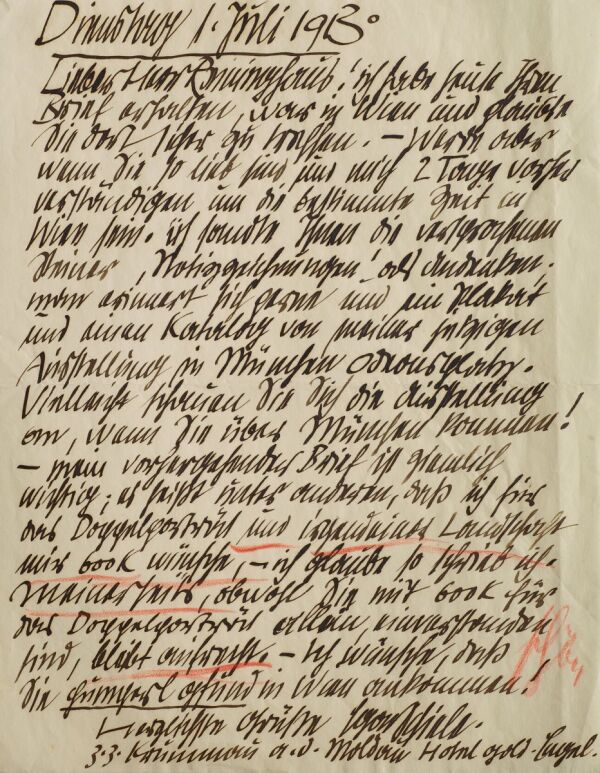 Dienstag 1. Juli 1913.
Lieber Herr Reininghaus! ich habe heute Ihren
Brief erhalten, war in Wien und glaubte
Sie dort sicher zu treffen. – Werde aber
wenn Sie so lieb sind und mich 2 Tage vorher
verständigen um die bestimmte Zeit in
Wien sein. ich sandte Ihnen die versprochenen
kleinen „Notizzeichnungen" als Andenken.
man erinnert sich gerne und ein Plakat
und einen Katalog von meiner jetzigen
Ausstellung in München Odeonsplatz.
Vielleicht schauen Sie Sich die Ausstellung
an, wenn Sie über München kommen!
– mein vorhergehender Brief ist ziemlich
wichtig; es heißt unter anderen, daß ich für
das Doppelporträt und irgendeiner Landschaft
mir 600 K wünsche, – ich glaube so schrieb ich.
meinerseits, obwohl Sie mit 600 K für
das Doppelporträt allein einverstanden
sind, bleibt aufrecht. – ich wünsche, daß
Sie gesund in Wien ankommen!
Herzlichste Grüße Egon Schiele.
z. Z. Krummau a. d. Moldau Hotel gold. Engel.